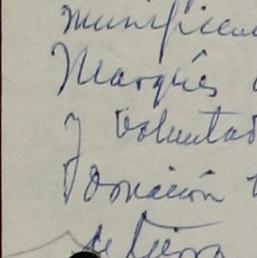 munificen
Marqués
y voluntad
Donación
de tierra